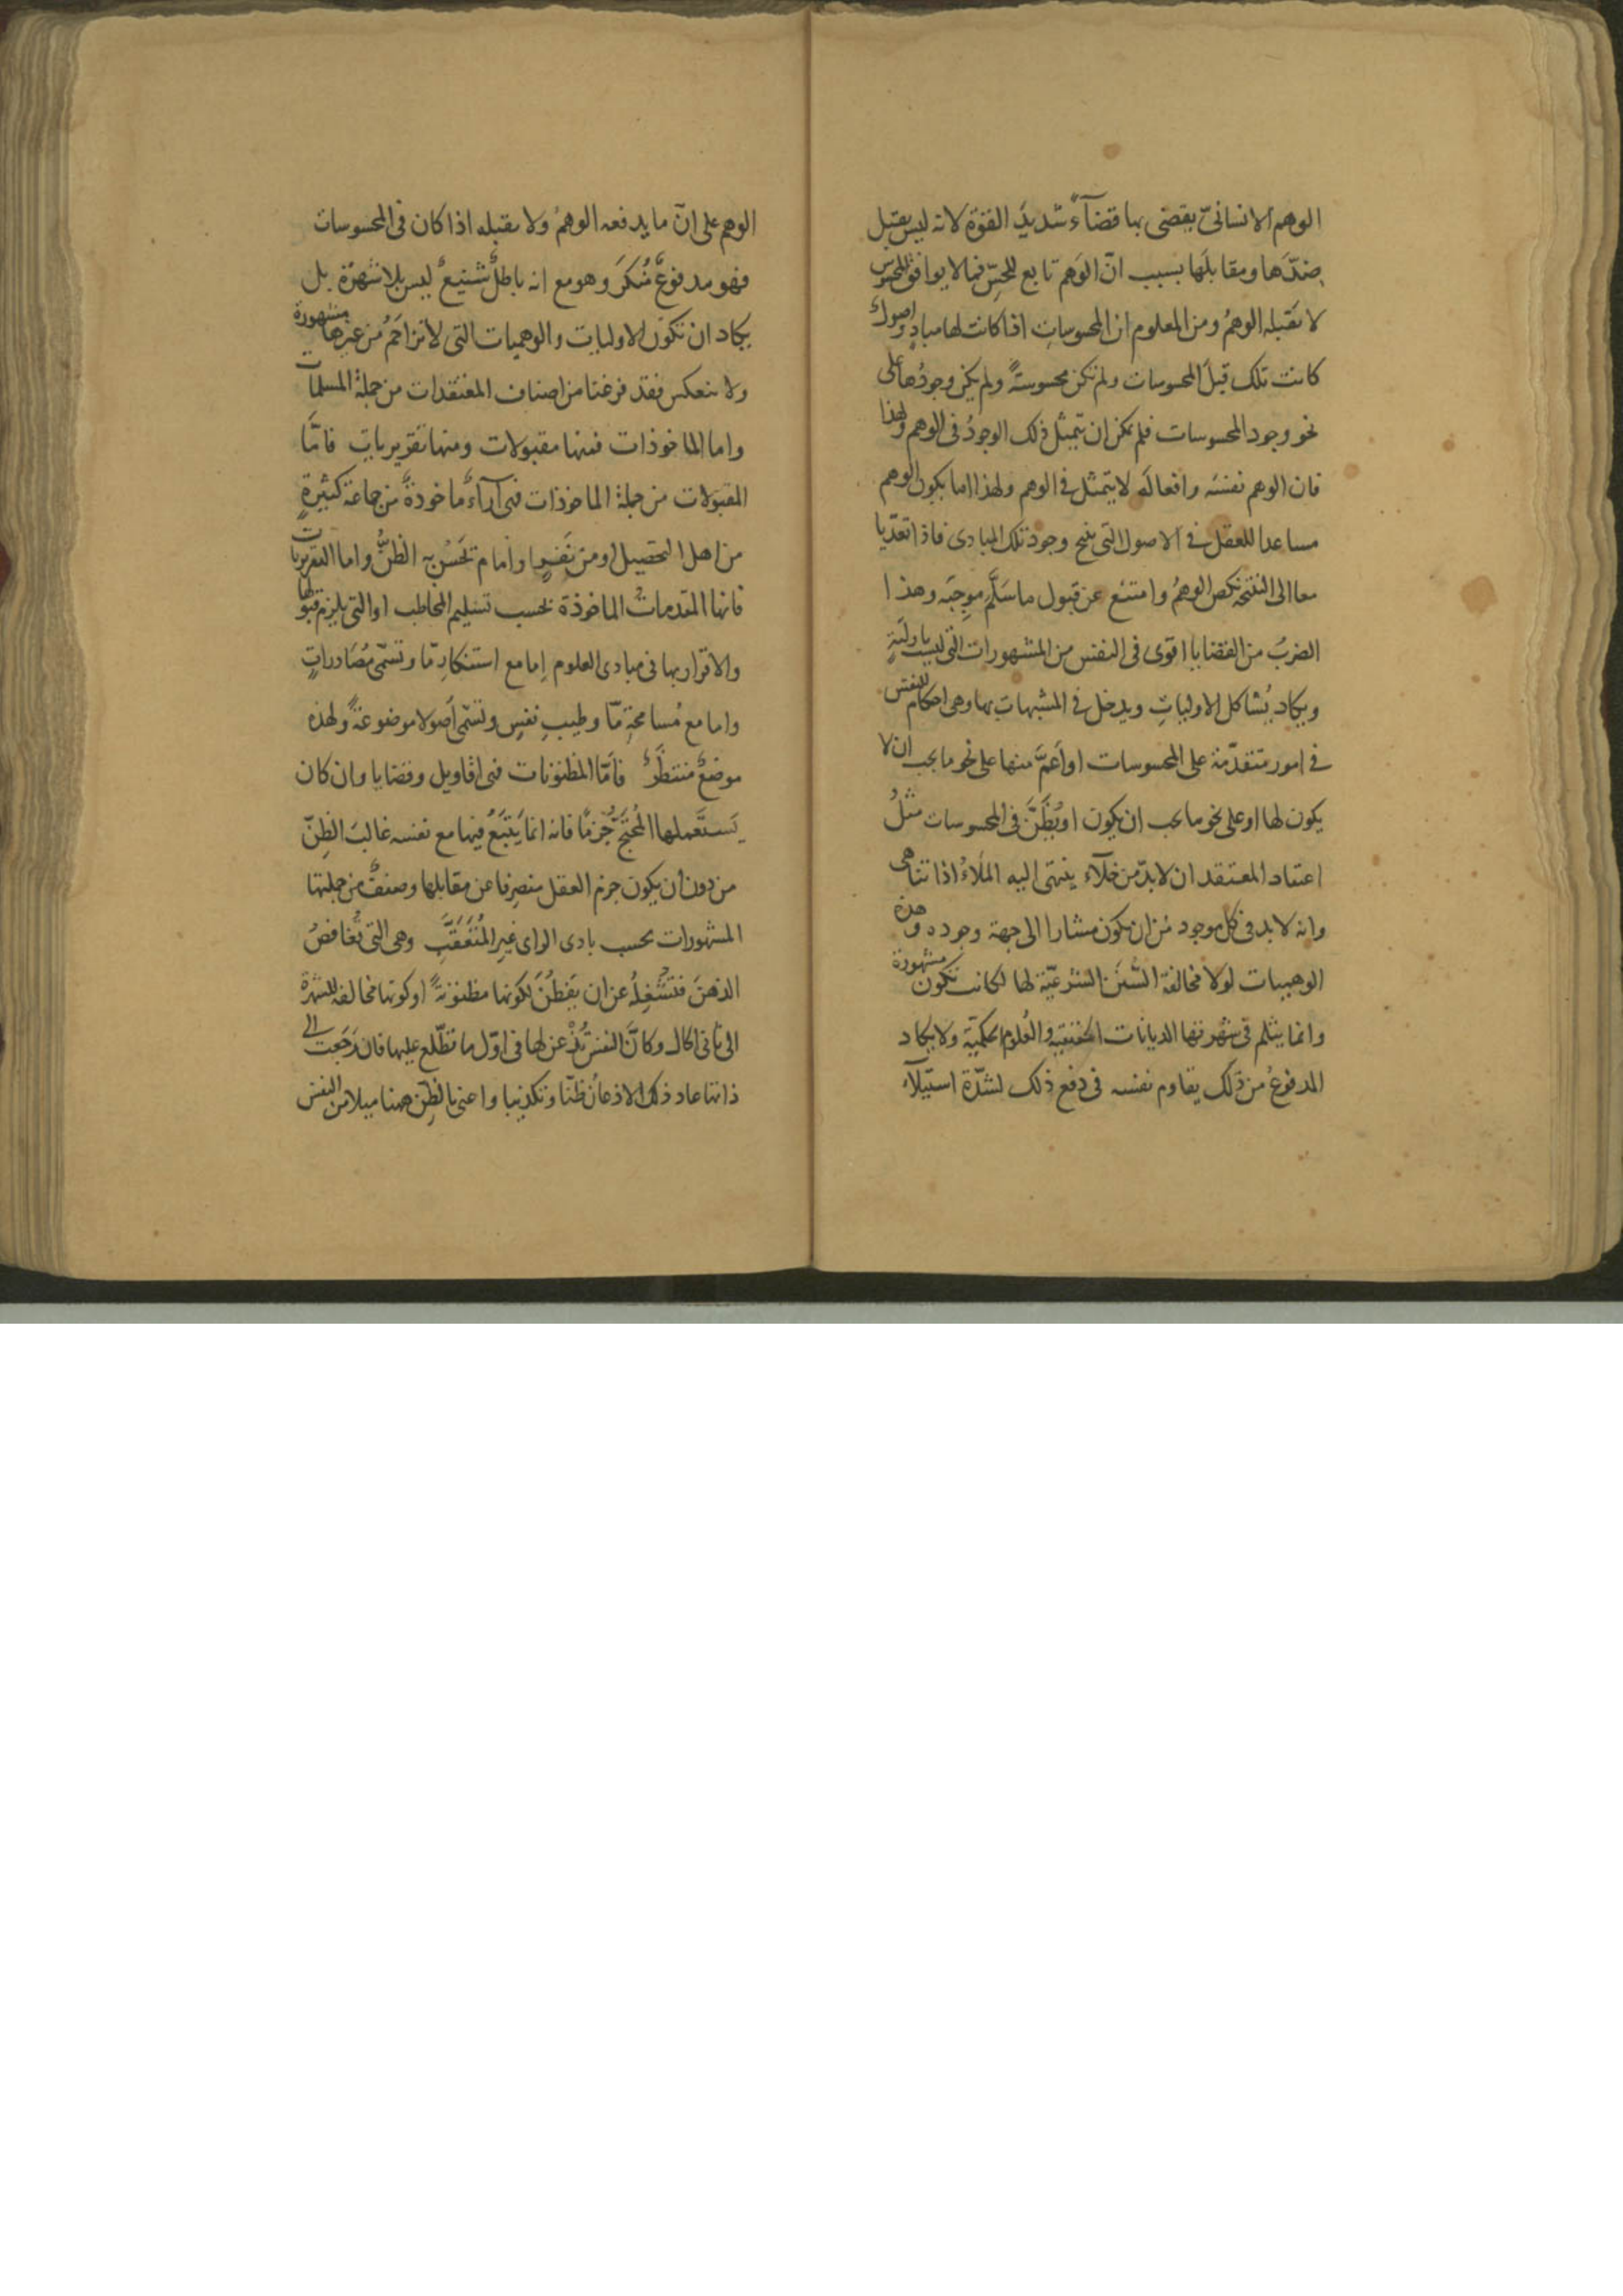 الوهم الانسانىّ يقضى بها قضآءً شديدَ القوّة لانه ليس يقبل
ضدَّها ومقابلَها بسبب انّ الوَهم تابع للحسّ فما لا يوافق المحسوس
لا يَقبله الوهمُ ومن المعلوم ان المحسوساتِ اذا كانت لها مبادٍ واصولٌ
كانت تلك قبلَ المحسوسات ولم تكن محسوسةً ولم يكن وجودُها على
نحو وجود المحسوسات فلم يمكن ان يتمثّل ذلك الوجودُ فى الوهم ولهذا
فان الوهم نفسَه وافعالَه لا يتمثل فى الوهم ولهذا اما يكون الوهم
مساعدا للعقل فى الاصول التى ينتج وجودَ تلك المبادى فاذا تعدّيا
معا الى النتيجة نكص الوهمُ وامتنع عن قبول ما سَلَّم موجِبَه وهذا
الضربُ من القضايا اقوى فى النفس من المشهورات التى ليست باوليّةٍ
ويكاد يُشاكل الاولياتِ ويدخل فى المشبهات بها وهى احكام للنفس
فى امور متقدّمة على المحسوسات او اَعمَّ منها على نحو ما يجب ان لا
يكون لها او على نحو ما يجب ان يكون او يُظَنَّ فى المحسوسات مثلُ
اعتقاد المعتقد ان لا بدّ من خلآء ينتهى اليه الملَاءُ اذا تناهى
وانه لا بد فى كل موجود مِن ان يكون مشارا الى جهة وجوده وهذه
الوهميات لولا مخالفة السُّنَن الشرعيّة لها لكانت تكون مشهورة
وانما يثلم فى شهرتها الديانات الحقيقية والعُلوم الحكميّة ولا يكاد
المدفوعُ من ذلك يقاوم نفسه فى دفع ذلك لشدّة استيلآء
الوهم على انّ ما يدفعه الوهمُ ولا يقبله اذا كان فى المحسوسات
فهو مدفوعٌ مُنكَر وهو مع انه باطلٌ شنيعٌ ليس بلا شهرّة بل
يكاد ان تكون الاوليات والوهميات التى لا تزاحَمُ من غيرها مشهورة
ولا ينعكس فقد فرغنا من اصناف المعتقدات من جملة المسلمات
واما الماخوذات فمنها مقبولات ومنها تقريريات فامّا
المقبولات من جملة الماخوذات فهى آراءٌ ماخوذةٌ من جماعة كثيرةٍ
من اهل التحصيل او من نَفَرٍ او امام تحَسُن به الظنُّ واما التقريريات
فانها المقدماتُ الماخوذة بحسب تسليم المخاطب او التى يلزم قبولها
والاقرار بها فى مبادى العلوم اما مع استنكارٍ مّا وتسمّى مُصَادراتٍ
واما مع مُسامحةٍ مّا وطيبِ نفسٍ وتسمّى اُصولا موضوعةً ولهذه
موضعٌ منتظَرٌ فامّا المظنونات فهى اقاويل وقضايا وان كان
يَستَعملها المُحْتَجُّ جَزمًا فانه انما يَتبَعُ فيها مع نفسه غالبَ الظنّ
من دون ان يكون جزم العقل منصرفا عن مقابلها وصنفٌ من جملتها
المشهورات بحسب بادى الراى غير المُتَعَقَّبِ وهى التى تُغافصُ
الذهنَ فتشْغِلُه عن ان يَفطُنَ لكونها مظنونةً او كونها مخالفة للشهرة
الى ثانى الحال وكانّ النفس تُذْعن لها فى اوّل ما تطّلع عليها فان رَجَعَت الى
ذاتها عاد ذلك الاذعانُ ظنّا وتكذيبا واعنى بالظنِّ ههنا ميلا من النفس